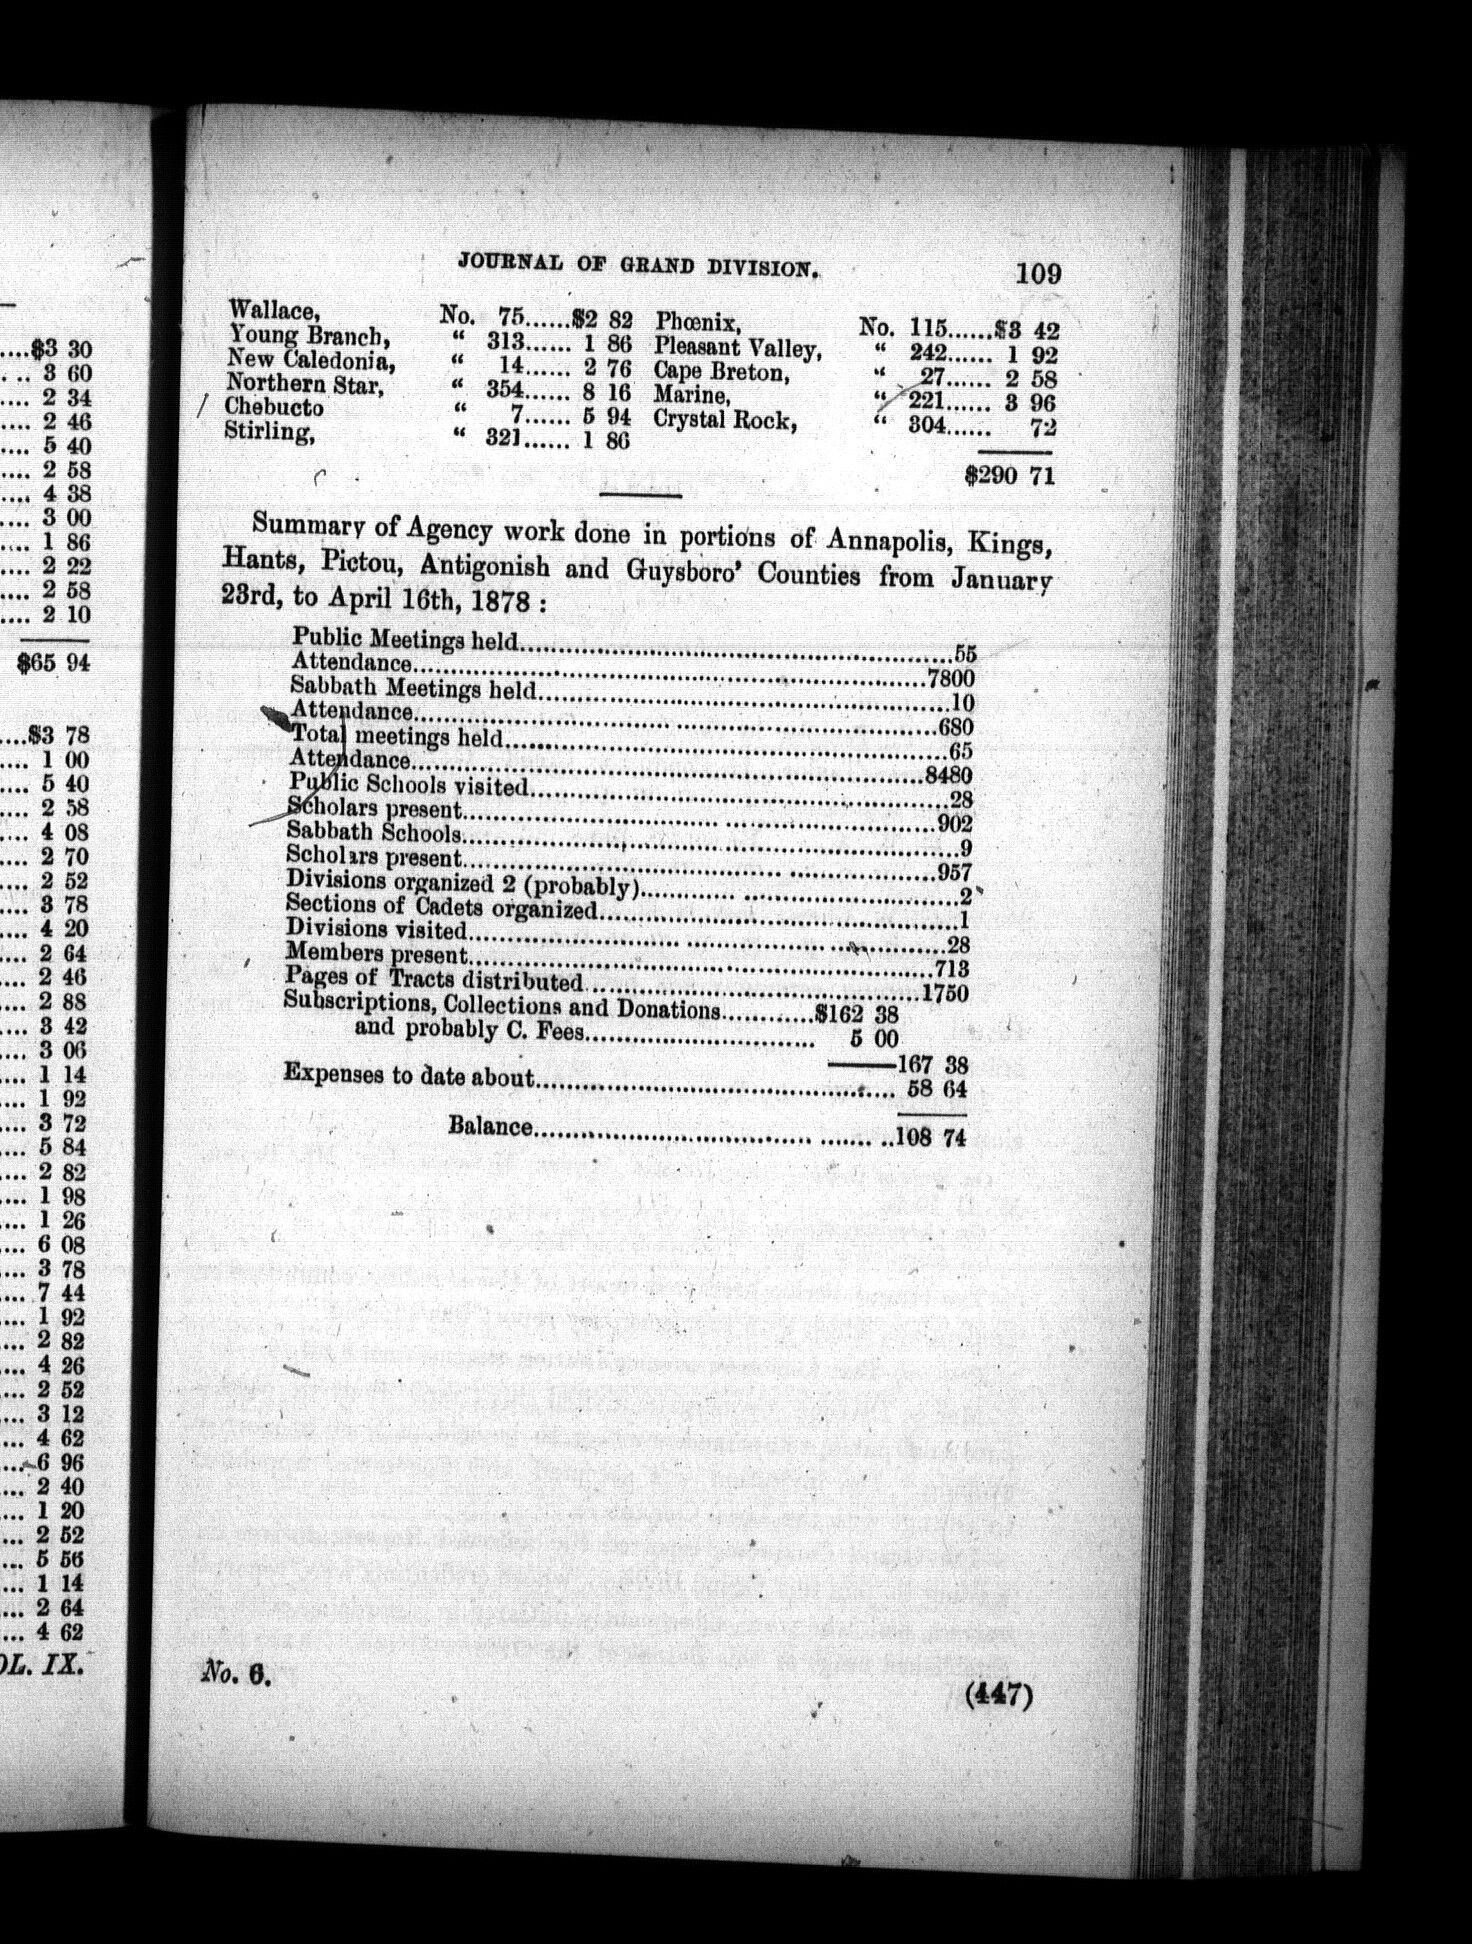 ....$3 30
. .. 3 60
.... 2 34
.... 2 46
.... 5 40
.... 2 58
.... 4 38
.... 3 00
.... 1 86
.... 2 22
.... 2 58
.... 2 10
$65 94
....$3 78
.... 1 00
.... 5 40
.... 2 58
.... 4 08
.... 2 70
.... 2 52
.... 3 78
.... 4 20
.... 2 64
.... 2 46
.... 2 88
.... 3 42
.... 3 06
.... 1 14
.... 1 92
.... 3 72
.... 5 84
.... 2 82
.... 1 98
.... 1 26
.... 6 08
.... 3 78
.... 7 44
.... 1 92
.... 2 82
.... 4 26
.... 2 52
.... 3 12
.... 4 62
.... 6 96
.... 2 40
.... 1 20
.... 2 52
.... 5 56
.... 1 14
.... 2 64
.... 4 62
OL. IX.
JOURNAL OF GRAND DIVISION. 109
Wallace, No. 75......$2 82 Phœnix, No. 115......$3 42
Young Branch, “ 313...... 1 86 Pleasant Valley, “ 242...... 1 92
New Caledonia, “ 14...... 2 76 Cape Breton, “ 27...... 2 58
Northern Star, “ 354...... 8 16 Marine, “ 221...... 3 96
Chebucto “ 7...... 5 94 Crystal Rock, “ 304...... 72
Stirling, “ 321...... 1 86
$290 71
Summary of Agency work done in portions of Annapolis, Kings,
Hants, Pictou, Antigonish and Guysboro’ Counties from January
23rd, to April 16th, 1878 :
Public Meetings held..........55
Attendance..........7800
Sabbath Meetings held..........10
Attendance..........680
Total meetings held..........65
Attendance..........8480
Public Schools visited..........28
Scholars present..........902
Sabbath Schools..........9
Scholars present..........957
Divisions organized 2 (probably)..........2
Sections of Cadets organized..........1
Divisions visited..........28
Members present..........713
Pages of Tracts distributed..........1750
Subscriptions, Collections and Donations............$162 38
and probably C. Fees.......... 5 00
167 38
Expenses to date about.......... 58 64
Balance..........108 74
No. 6. (447)